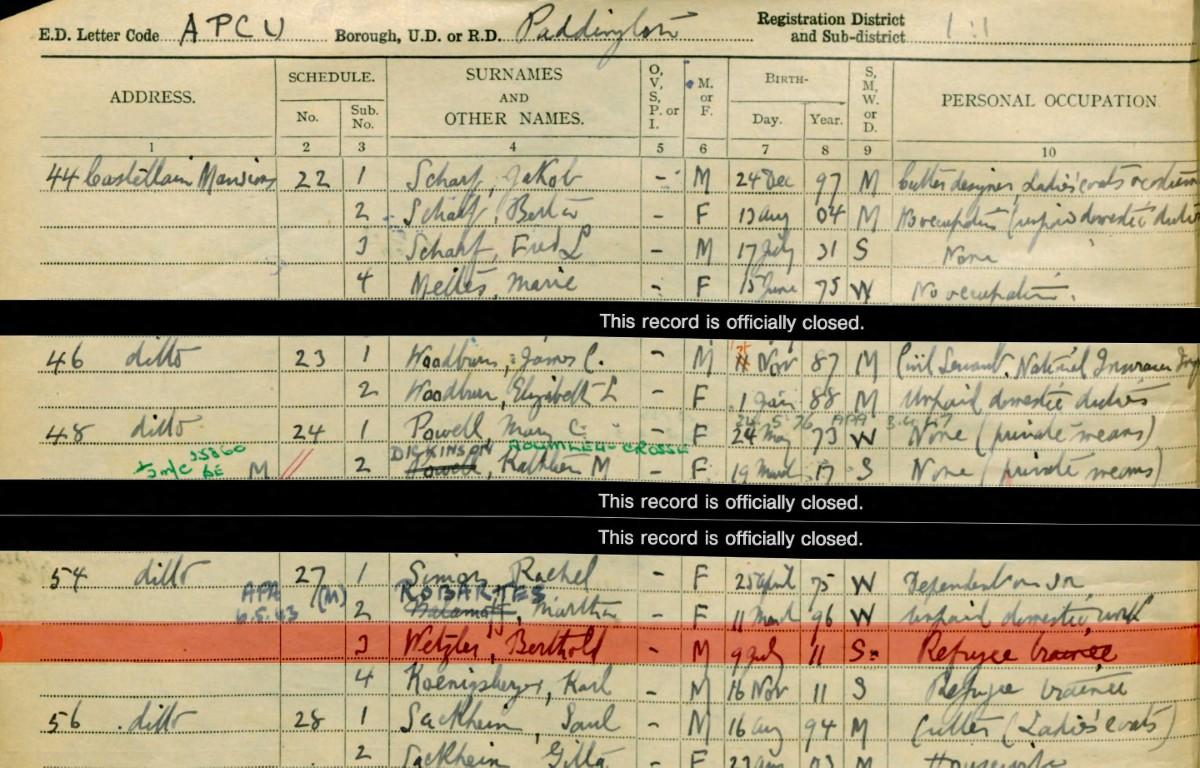 E.D. Letter Code APCU Borough, U.D. or R.D. Paddington Registration District and Sub-district 1:1
ADDRESS. SCHEDULE. No. Sub. No. SURNAMES AND OTHER NAMES. O, V, S, P. or I. M. or F. BIRTH- Day. Year. S, M, W. or D. PERSONAL OCCUPATION
1 2 3 4 5 6 7 8 9 10
44 Castellain Mansions 22 1 Scharf, Jakob - M 24 Dec 97 M Cutter designer, Ladies' coats
2 Scharf, - F 13 Aug 04 M No occupation (unpaid domestic duties
3 Scharf, Fred L - M 17 July 31 S None
4 Marie - F 15 June 75 W No occupation.
This record is officially closed.
46 ditto 23 1 Woodburn, James C. - M Nov 87 M Civil Servant. National Insurance
2 Woodburn, Elizabeth L - F 1 Jan 88 M Unpaid domestic duties
48 ditto 24 1 Powell Mary C - F 24 May 73 W None (private means)
DICKINSON
M 2 Powell, Kathleen M - F 19 March 17 S None (private means)
This record is officially closed.
This record is officially closed.
54 ditto 27 1 Rachel - F 25 April 75 W Dependent on
APA (M) ROBARTES
6.5.43 2 Martha - F 11 March 96 W Unpaid domestic work
3 Wetzler, Berthold - M 9 July 11 S Refugee trainee
4 Koenigsberger, Karl - M 16 Nov 11 S Refugee trainee
56 ditto 28 1 Sackheim, Saul - M 16 Aug 94 M Cutter (Ladies' coats)
2 Sackheim, Gitta F M